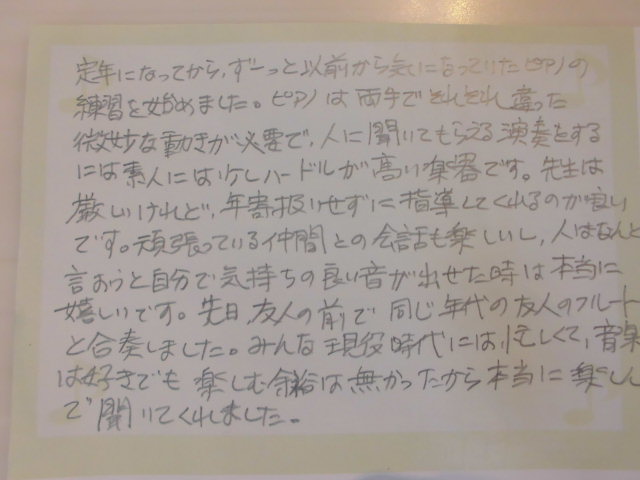 定年になってから、ずーっと以前から気になっていたピアノの
練習を始めました。ピアノは両手でそれぞれ違った
微妙な動きが必要で、人に聞いてもらえる演奏をする
には素人には少しハードルが高い楽器です。先生は
厳しいけれど、年寄扱いせずに指導してくれるのが良い
です。頑張っている仲間との会話も楽しいし、人はなんと
言おうと自分で気持ちの良い音が出せた時は本当に
嬉しいです。先日、友人の前で同じ年代の友人のフルート
と合奏しました。みんな現役時代には、忙しくて、音楽
は好きでも楽しむ余裕は無かったから本当に楽しん
で聞いてくれました。